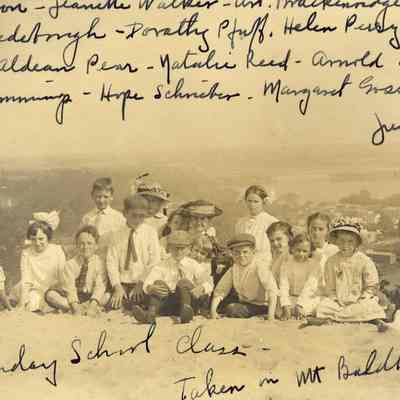 Jeanette Walker - Wm. Brackenridge
Dorothy Pfuff. Helen Perry
Aldean Pear - Natalie Reed - Arnold
mmings - Hope Schrieber - Margaret Goss
Ju
nday School Class -
Taken on Mt Baldh